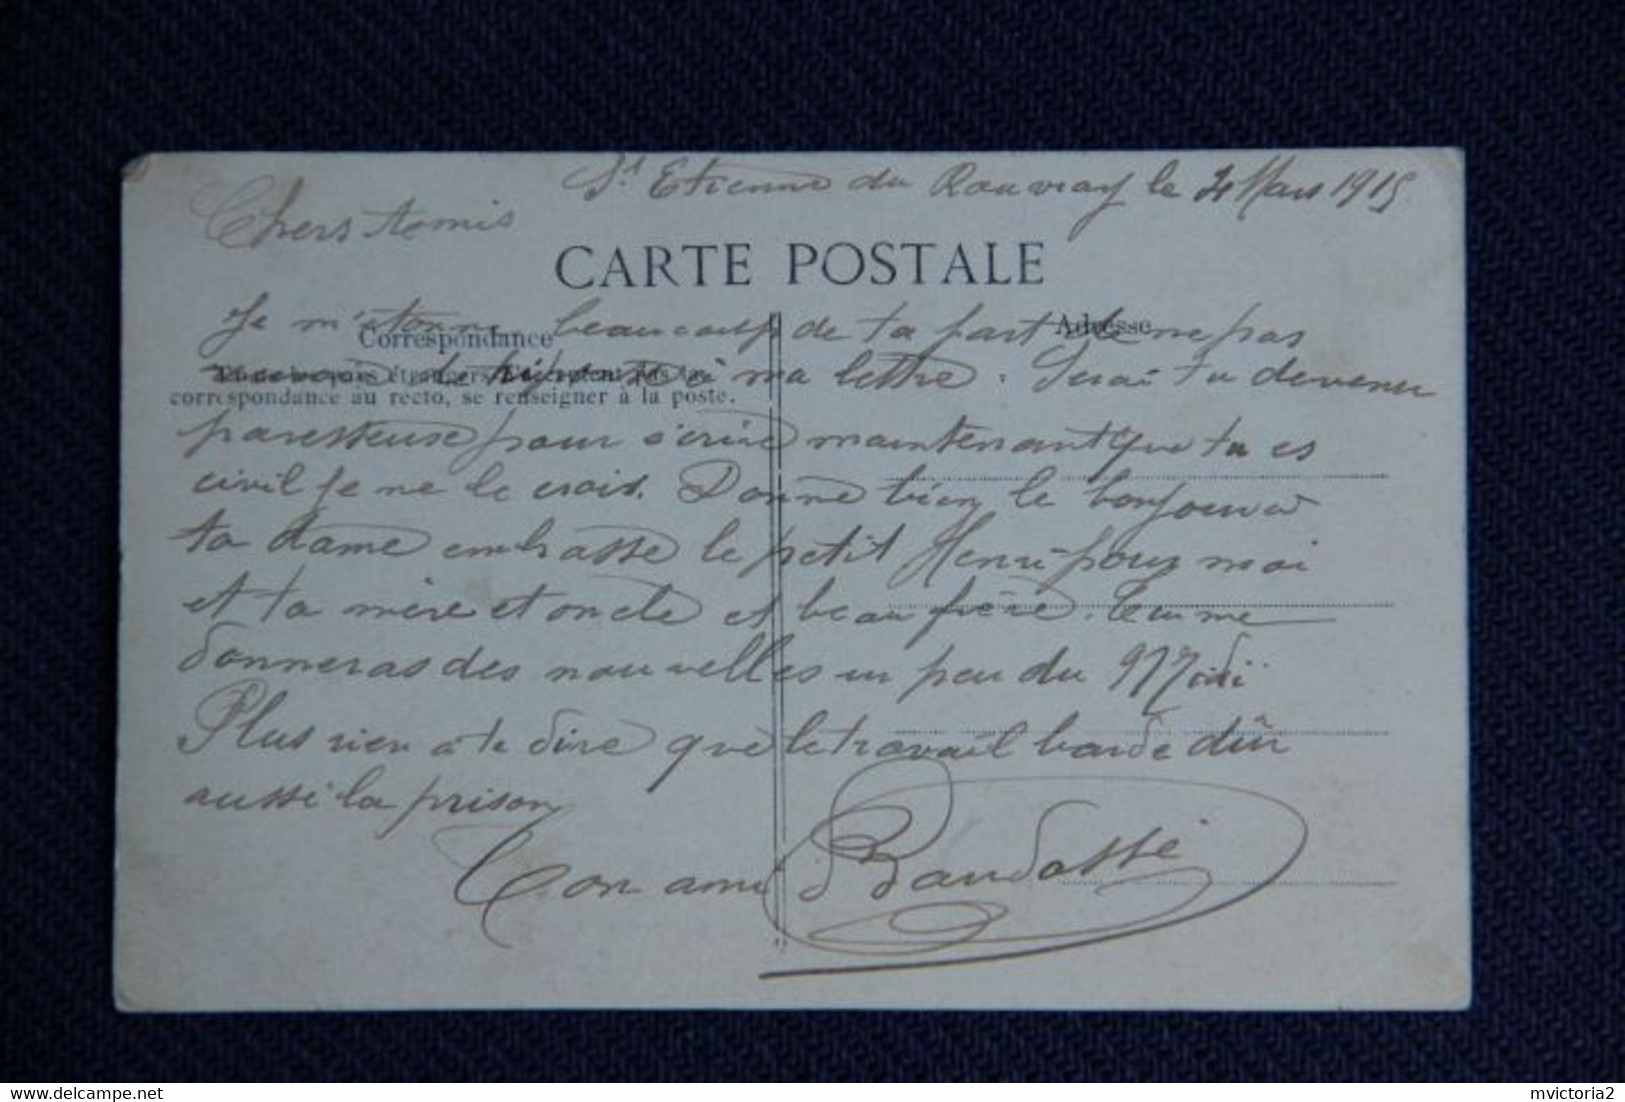 St Etienne du Rouvray le 4 Mars 1915
Chers Amis
CARTE POSTALE
Je m'étonne beaucoup de ta part de me pas
Correspondance
Adresse
à ma lettre. Serai tu devenu
correspondance au recto, se renseigner à la poste.
paresseuse pour s'crire maintenant que tu es
civil je ne le crois. Donne bien le bonjour a
ta dame embrasse le petit Henri pour moi
et ta mère et oncle et beau frère. Tu me
donneras des nouvelles un peu du Midi
Plus rien a te dire que le travail barde dûr
aussi la prison
Ton ami Baudassé
delcampe.net
mvictoria2